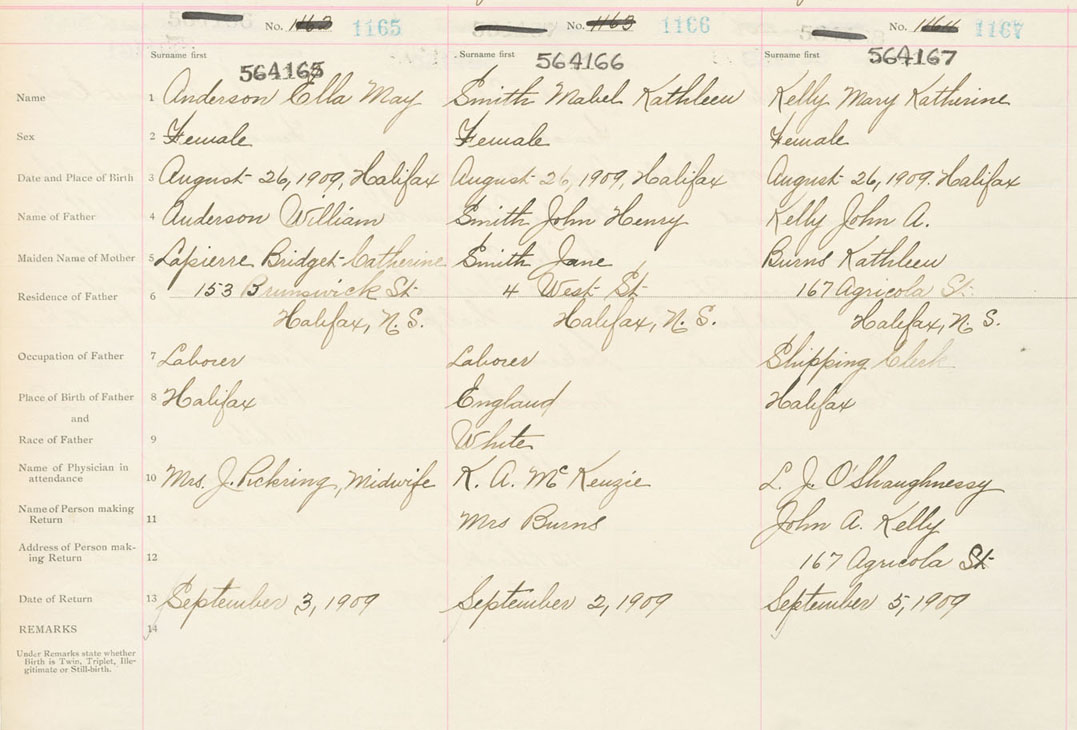 No. 1165 No. 1166 No. 1167
Surname first Surname first Surname first
564165 564166 564167
Name 1 Anderson Ella May Smith Mabel Kathleen Kelly Mary Katherine
Sex 2 Female Female Female
Date and Place of Birth 3 August 26, 1909, Halifax August 26, 1909, Halifax August 26, 1909. Halifax
Name of Father 4 Anderson William Smith John Henry Kelly John A.
Maiden Name of Mother 5 Lapierre Bridget Catherine Smith Jane Burns Kathleen
Residence of Father 6 153 Brunswick St 4 West St 167 Agricola St
Halifax, N.S. Halifax, N.S. Halifax, N.S.
Occupation of Father 7 Laborer Laborer Shipping Clerk
Place of Birth of Father 8 Halifax England Halifax
and
Race of Father 9 White
Name of Physician in
attendance 10 Mrs. J. Pickring, Midwife K. A. McKenzie L. J. O'Shaughnessy
Name of Person making
Return 11 Mrs Burns John A. Kelly
Address of Person mak-
ing Return 12 167 Agricola St
Date of Return 13 September 3, 1909 September 2, 1909 September 5, 1909
REMARKS 14
Under Remarks state whether
Birth is Twin, Triplet, Ille-
gitimate or Still-birth.